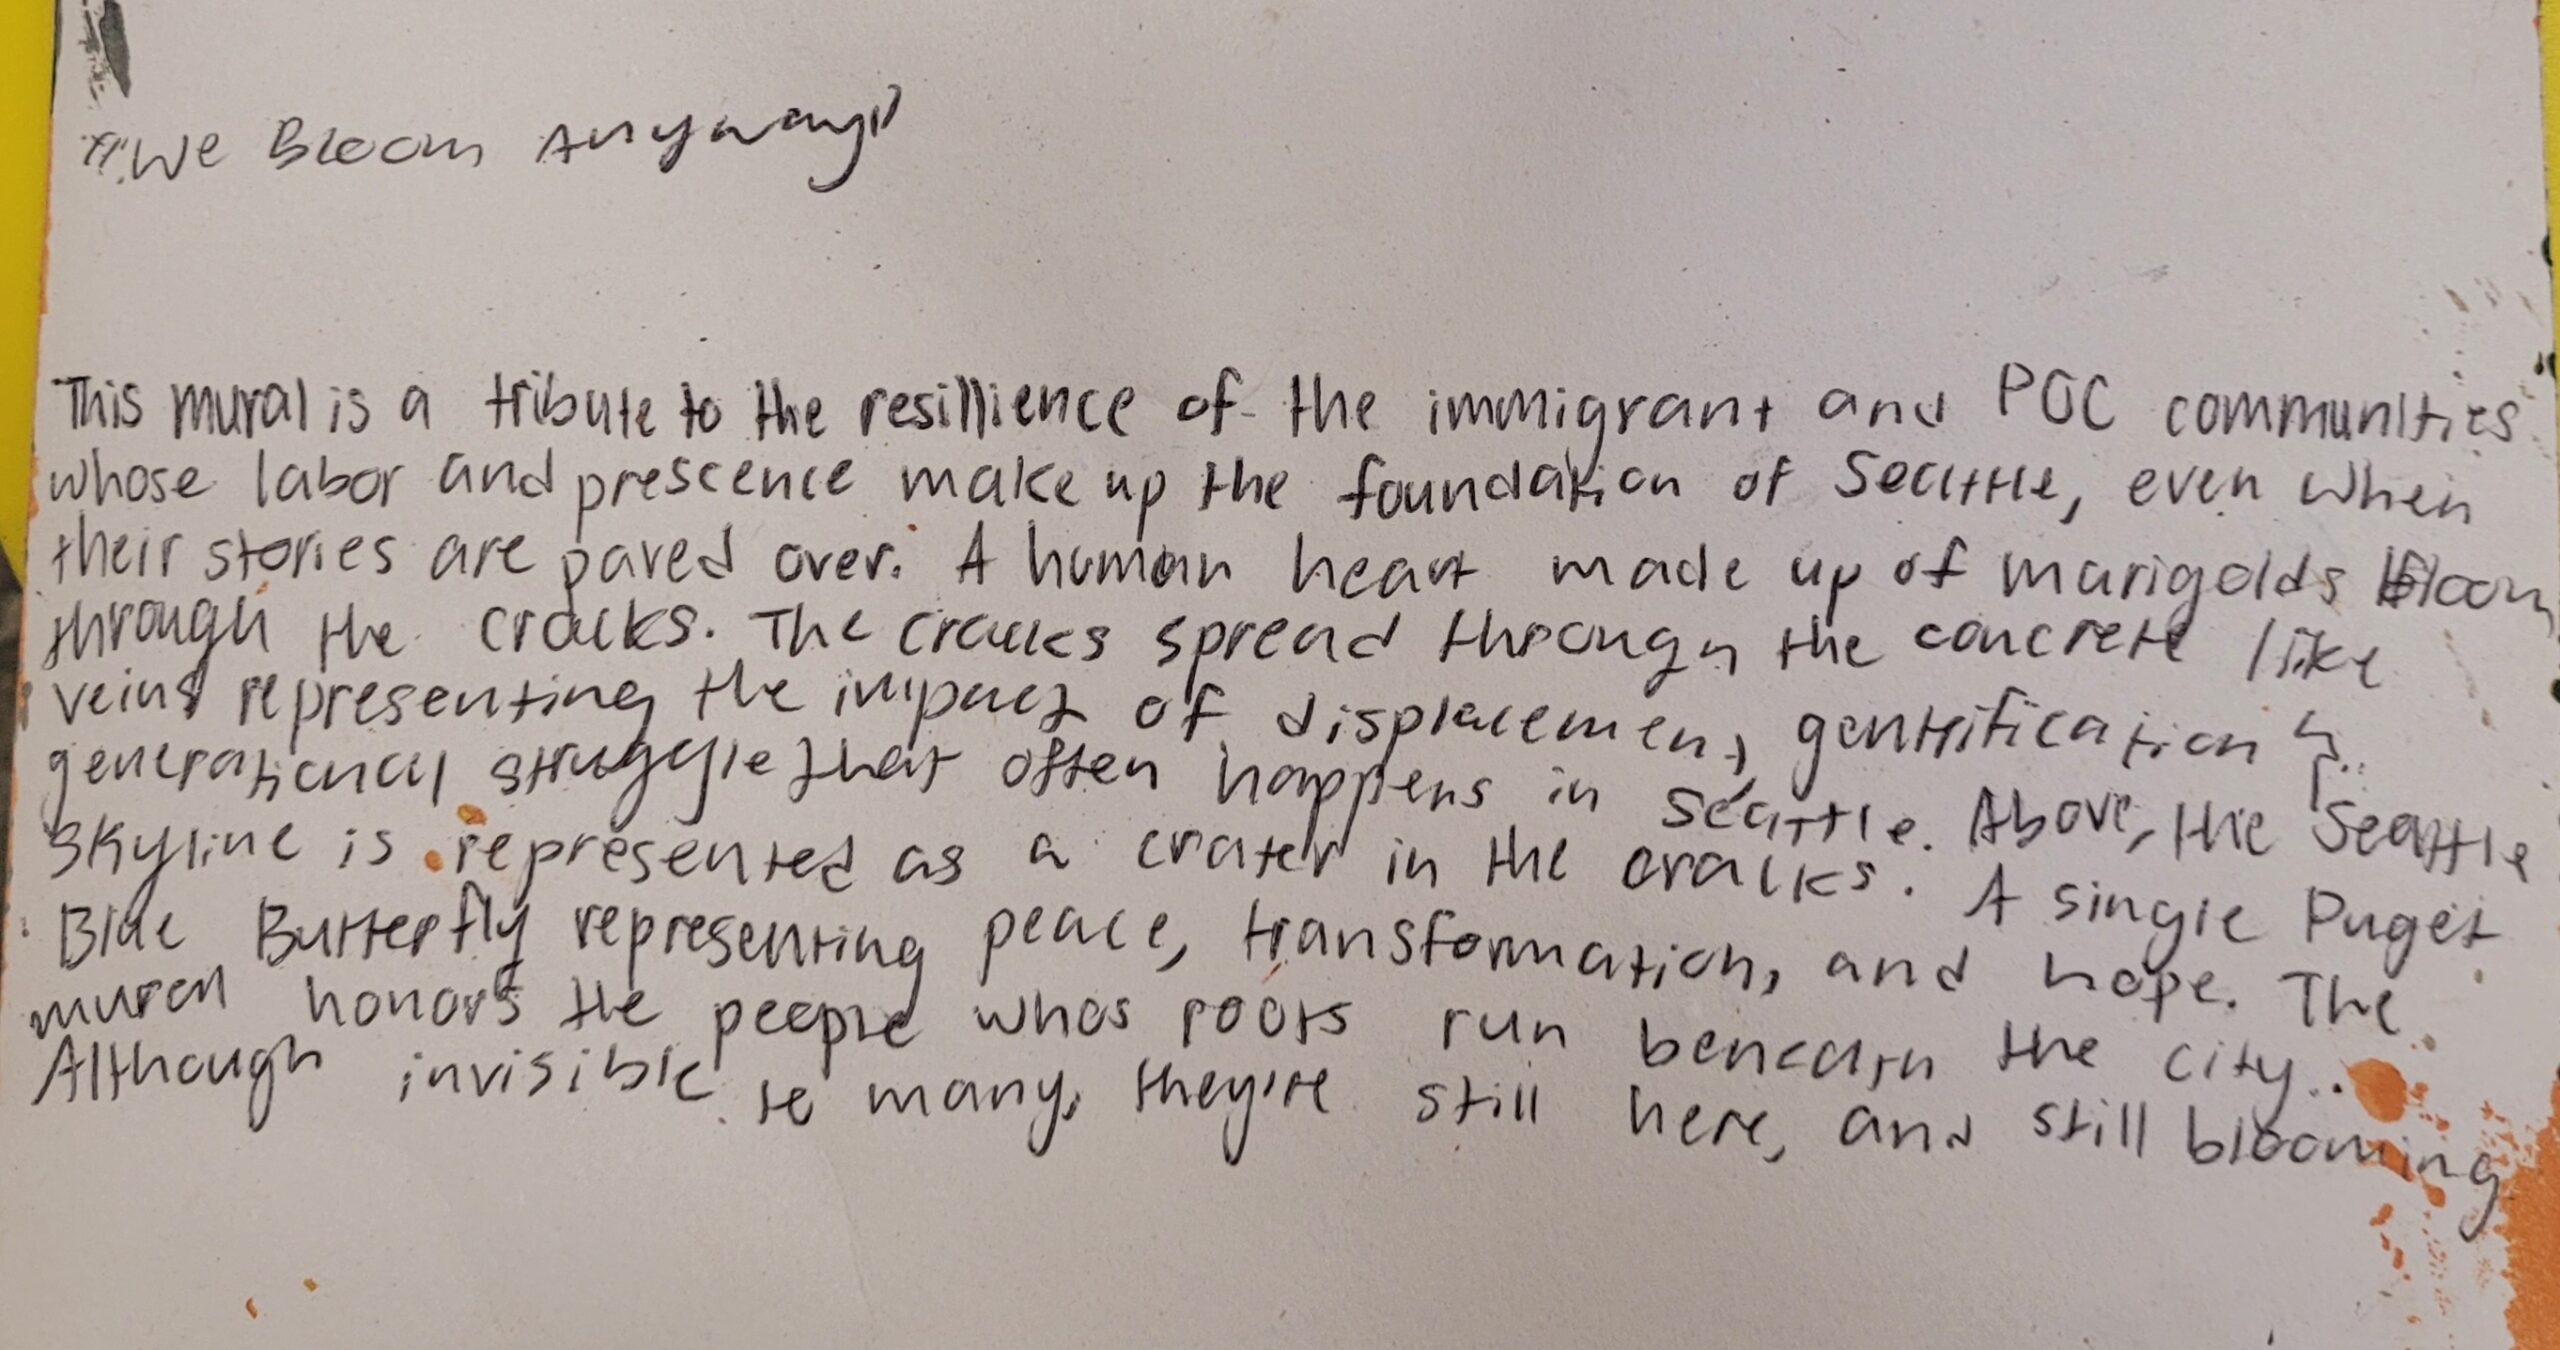 "We Bloom Anyway"
This mural is a tribute to the resillience of the immigrant and POC communities
whose labor and prescence make up the foundation of Seattle, even when
their stories are paved over. A human heart made up of marigolds bloom
through the cracks. The cracks spread through the concrete like
veins representing the impact of displacement, gentrification &
generational struggle that often happens in Seattle. Above, the Seattle
skyline is represented as a crater in the cracks. A single Puget
Blue Butterfly representing peace, transformation, and hope. The
mural honors the people whos roots run beneath the city.
Although invisible to many, they're still here, and still blooming